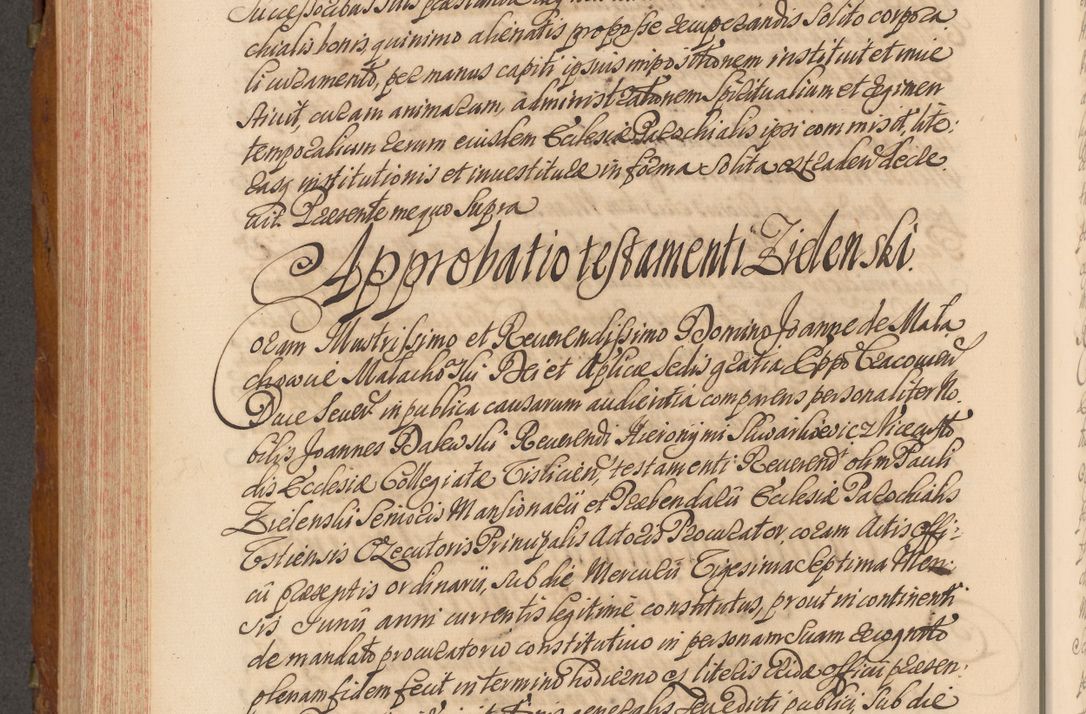 Successoribus suis præstanda
chialis bonis, quinimo alienatis proposse recuperandis solito corpora
li iuramento, per manus capiti ipsius impositionem instituit et inve
stivit, curam animarum, administrationem Spiritualium et regimen
temporalium rerum eiusdem Ecclesiæ Parochialis ipsi commisit, lite:
rasq institutionis et investituræ in forma solita extraden decre
vit. Præsente me quo supra
Approbatio testamenti Zielenski.
Coram Illustrissimo et Reverendissimo Domino Joanne de Mala
chowice Malachowski Dei et Aplicæ Sedis gratia Eppo Cracovien
Duce Sever in publica causarum audientia comparens personaliter No
bilis Joannes Dalewski Reverendi Hieronymi Skwarkiewicz Vicecusto
dis Ecclesiæ Collegiatæ Tislicien, testamenti Reverend olim Pauli
Zielenski Senioris Mansionarii et Præbendarii Ecclesiæ Parochialis
Ostiensis Executoris Principalis Actoris Procurator, coram Actis offi:
cii præsentis ordinarii, sub die Mercurii Vigesima septima Men:
sis Junii anni currentis legitime constitutus, prout in continenti
de mandato procuratorio constitutivo in personam suam recognito
plenam fidem fecit in termino hodierno ex literis eidæ officii præsen:
generalis edicti publici, sub die